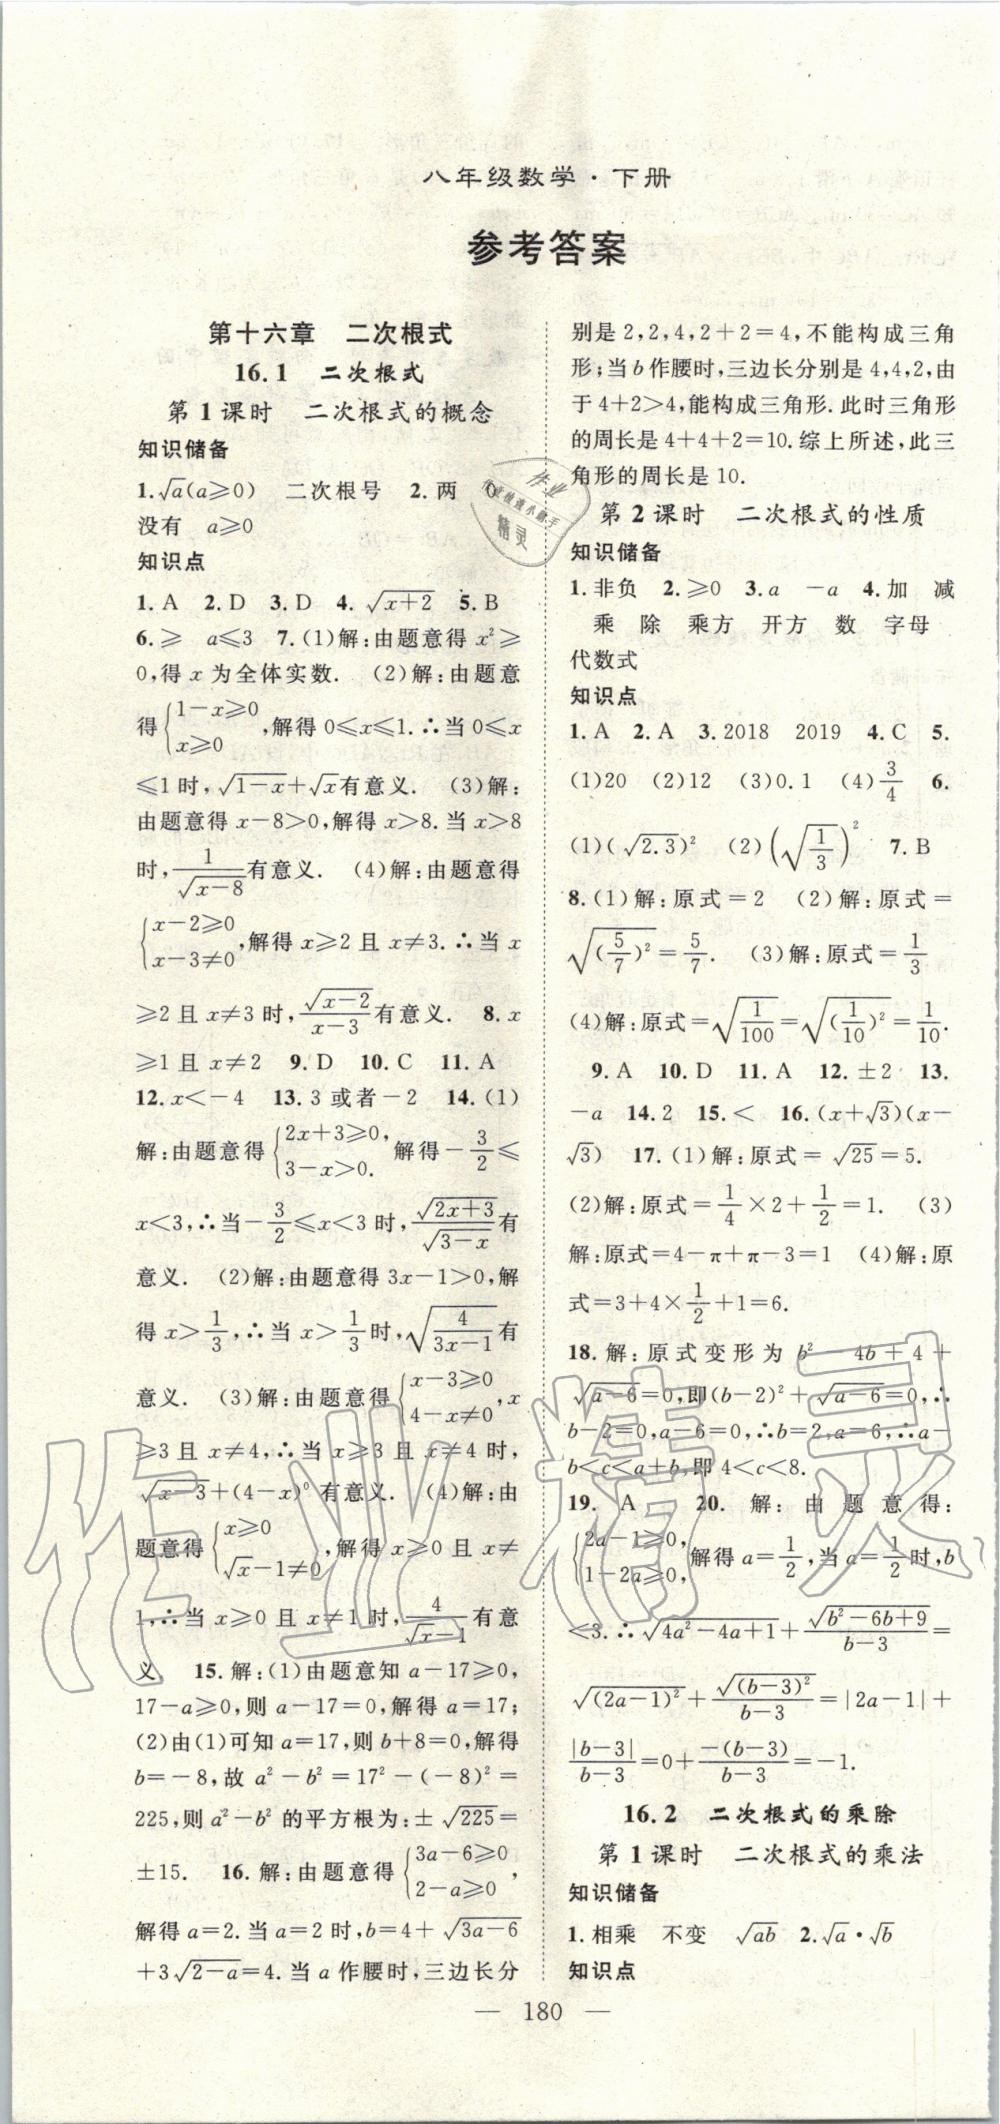 八年级数学·下册
参考答案
第十六章 二次根式
16.1 二次根式
第1课时 二次根式的概念
知识储备
1.√a(a≥0) 二次根号 2.两 0
没有 a≥0
知识点
1.A 2.D 3.D 4.√(x+2) 5.B
6.≥ a≤3 7.(1)解:由题意得 x²≥
0,得 x 为全体实数. (2)解:由题意
得{1-x≥0 x≥0,解得0≤x≤1.∴当0≤x
≤1时,√(1-x)+√x有意义. (3)解:
由题意得 x-8>0,解得 x>8.当 x>8
时,1/√(x-8)有意义. (4)解:由题意得
{x-2≥0 x-3≠0,解得 x≥2 且 x≠3.∴当 x
≥2 且 x≠3 时,√(x-2)/(x-3)有意义. 8.x
≥1且 x≠2 9.D 10.C 11.A
12.x<-4 13.3 或者-2 14.(1)
解:由题意得{2x+3≥0, 3-x>0. 解得-3/2≤
x<3,∴当-3/2≤x<3时,√(2x+3)/√(3-x)有
意义. (2)解:由题意得3x-1>0,解
得 x>1/3,∴当 x>1/3时,√(4/(3x-1))有
意义. (3)解:由题意得{x-3≥0 4-x≠0,x
≥3且 x≠4,∴当 x≥3且 x≠4时,
√(x-3)+(4-x)⁰有意义. (4)解:由
题意得{x≥0 √x-1≠0,解得 x≥0 且 x≠
1,∴当 x≥0 且 x≠1 时,4/(√x-1)有意
义 15.解:(1)由题意知 a-17≥0,
17-a≥0,则 a-17=0,解得 a=17;
(2)由(1)可知 a=17,则 b+8=0,解得
b=-8,故 a²-b²=17²-(-8)²=
225,则 a²-b² 的平方根为:±√225=
±15. 16.解:由题意得{3a-6≥0 2-a≥0,
解得 a=2.当 a=2 时,b=4+√(3a-6)
+3√(2-a)=4.当 a 作腰时,三边长分
别是2,2,4,2+2=4,不能构成三角
形;当 b 作腰时,三边长分别是4,4,2,由
于4+2>4,能构成三角形.此时三角形
的周长是4+4+2=10.综上所述,此三
角形的周长是10.
第2课时 二次根式的性质
知识储备
1.非负 2.≥0 3.a -a 4.加 减
乘 除 乘方 开方 数 字母
代数式
知识点
1.A 2.A 3.2018 2019 4.C 5.
(1)20 (2)12 (3)0.1 (4)3/4 6.
(1)(√2.3)² (2)(√(1/3))² 7.B
8.(1)解:原式=2 (2)解:原式=
√((5/7)²)=5/7. (3)解:原式=1/3
(4)解:原式=√(1/100)=√((1/10)²)=1/10.
9.A 10.D 11.A 12.±2 13.
-a 14.2 15.< 16.(x+√3)(x-
√3) 17.(1)解:原式=√25=5.
(2)解:原式=1/4×2+1/2=1. (3)
解:原式=4-π+π-3=1 (4)解:原
式=3+4×1/2+1=6.
18.解:原式变形为 b²-4b+4+
√(a-6)=0,即(b-2)²+√(a-6)=0,∴
b-2=0,a-6=0,∴b=2,a=6,∴a-
b<c<a+b,即4<c<8.
19. A 20. 解:由题意得:
{2a-1≥0, 1-2a≥0,解得a=1/2,当a=1/2时,b
<3.∴√(4a²-4a+1)+√(b²-6b+9)/(b-3)=
√((2a-1)²)+√((b-3)²)/(b-3)=|2a-1|+
|b-3|/(b-3)=0+-(b-3)/(b-3)=-1.
16.2 二次根式的乘除
第1课时 二次根式的乘法
知识储备
1.相乘 不变 √(ab) 2.√a·√b
知识点
— 180 —